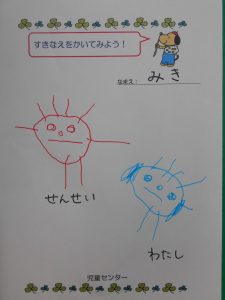 すきなえをかいてみよう！
なまえ：みき
せんせい
わたし
児童センター